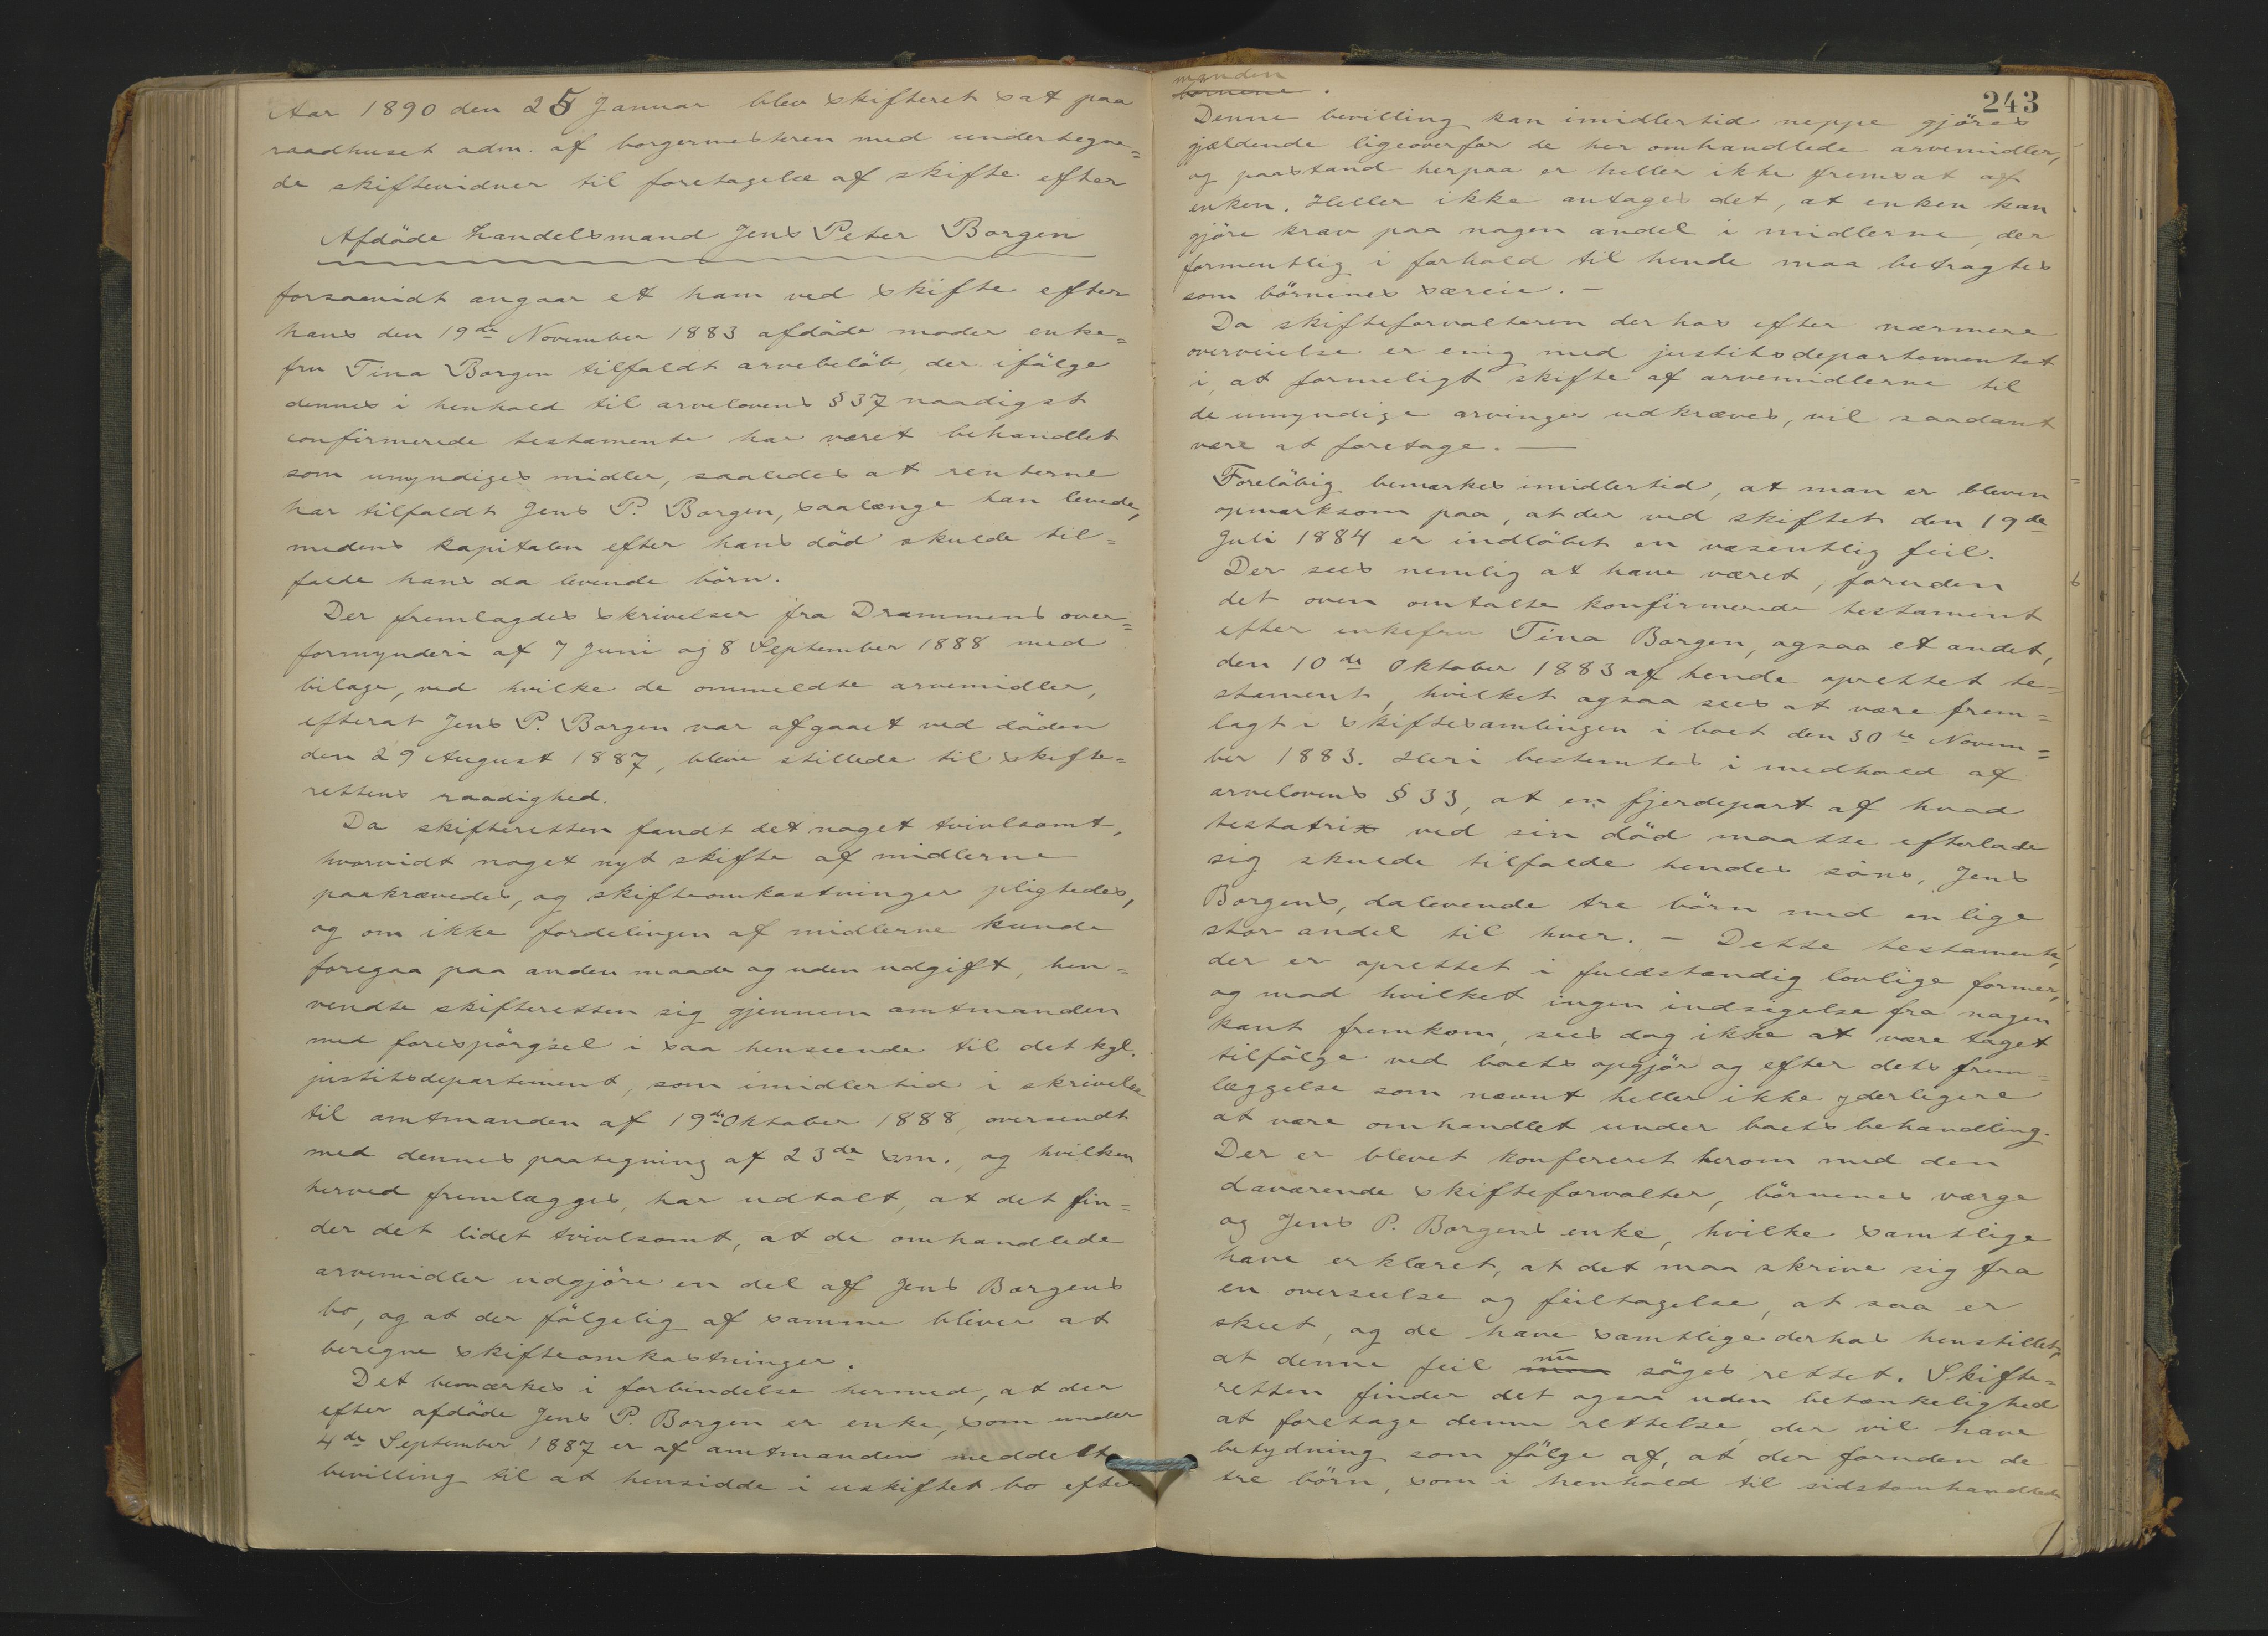 Aar 1890 den 25 Januar blev skifteret sat paa
raadhuset adm. af borgermesteren med undertegne=
de skiftevidner til foretagelse af skifte efter
Afdöde handelsmand Jens Peter Borgen
forsaavidt angaar et ham ved skifte efter
hans den 19de November 1883 afdöde moder enke=
fru Tina Borgen tilfaldt arvebelöb, der ifölge
dennes i henhold til arvelovens § 37 naadigst
confirmerede testamente har været behandlet
som umyndiges midler, saaledes at renterne
har tilfaldt Jens P. Borgen, saalænge han levede,
medens kapitalen efter hans död skulde til=
falde hans da levende börn.
Der fremlagdes skrivelser fra Drammens over=
formynderi af 7 Juni og 8 September 1888 med
bilage, ved hvilke de ommeldte arvemidler,
efterat Jens P. Borgen var afgaaet ved döden
den 29 August 1887, bleve stillede til skifte=
rettens raadighed.
Da skifteretten fandt det noget tvivlsomt,
hvorvidt noget nyt skifte af midlerne
paakrævedes, og skifteomkostninger pligtedes,
og om ikke fordelingen af midlerne kunde
foregaa paa anden maade og uden udgift, hen=
vendte skifteretten sig gjennem amtmanden
med forespörgsel i saa henseende til det kgl.
justitsdepartement, som imidlertid i skrivelse
til amtmanden af 19de Oktober 1888, oversendt
med dennes paategning af 23de sm., og hvilken
herved fremlægges, har udtalt, at det fin=
der det lidet tvivlsomt, at de omhandlede
arvemidler udgjöre en del af Jens Borgens
bo, og at der fölgelig af samme bliver at
beregne skifteomkostninger.
Det bemærkes i forbindelse hermed, at der
efter afdöde Jens P. Borgen er enke, som under
4de September 1887 er af amtmanden meddelt
bevilling til at hensidde i uskiftet bo efter
243
manden
börnene.
Denne bevilling kan imidlertid neppe gjöres
gjældende ligeoverfor de her omhandlede arvemidler,
og paastand herpaa er heller ikke fremsat af
enken. Heller ikke antages det, at enken kan
gjöre krav paa nogen andel i midlerne, der
formentlig i forhold til hende maa betragtes
som börnenes særeie. -
Da skifteforvalteren derhos efter nærmere
overveielse er enig med justitsdepartementet
i, at formeligt skifte af arvemidlerne til
de umyndige arvinger udkræves, vil saadant
være at foretage. —
Foreløbig bemærkes imidlertid, at man er bleven
opmærksom paa, at der ved skiftet den 19de
Juli 1884 er indlöbet en væsentlig feil.
Der sees nemlig at have været, foruden
det oven omtalte konfirmerede testament
efter enkefru Tina Borgen, ogsaa et andet,
den 10de Oktober 1883 af hende oprettet te=
stament, hvilket ogsaa sees at være frem=
lagt i skiftesamlingen i boet den 30te Novem=
ber 1883. Heri bestemtes i medhold af
arvelovens § 33, at en fjerdepart af hvad
testatrix ved sin död maatte efterlade
sig skulde tilfalde hendes söns, Jens
Borgens, dalevende tre börn med en lige
stor andel til hver. - Dette testamente,
der er oprettet i fuldstændig lovlige former,
og mod hvilket ingen indsigelse fra nogen
kant fremkom, sees dog ikke at være taget
tilfölge ved boets opgjör og efter dets frem=
læggelse som nævnt heller ikke yderligere
at være omhandlet under boets behandling.
Der er blevet konfereret herom med den
daværende skifteforvalter, börnenes værge
og Jens P. Borgens enke, hvilke samtlige
have erklæret, at det maa skrive sig fra
en overseelse og feiltagelse, at saa er
skeet, og de have samtlige derhos henstillet,
at denne feil nu söges rettet. Skifte=
retten finder det ogsaa uden betænkelighed
at foretage denne rettelse, der vil have
betydning som fölge af, at der foruden de
tre börn, som i henhold til sidstomhandlede